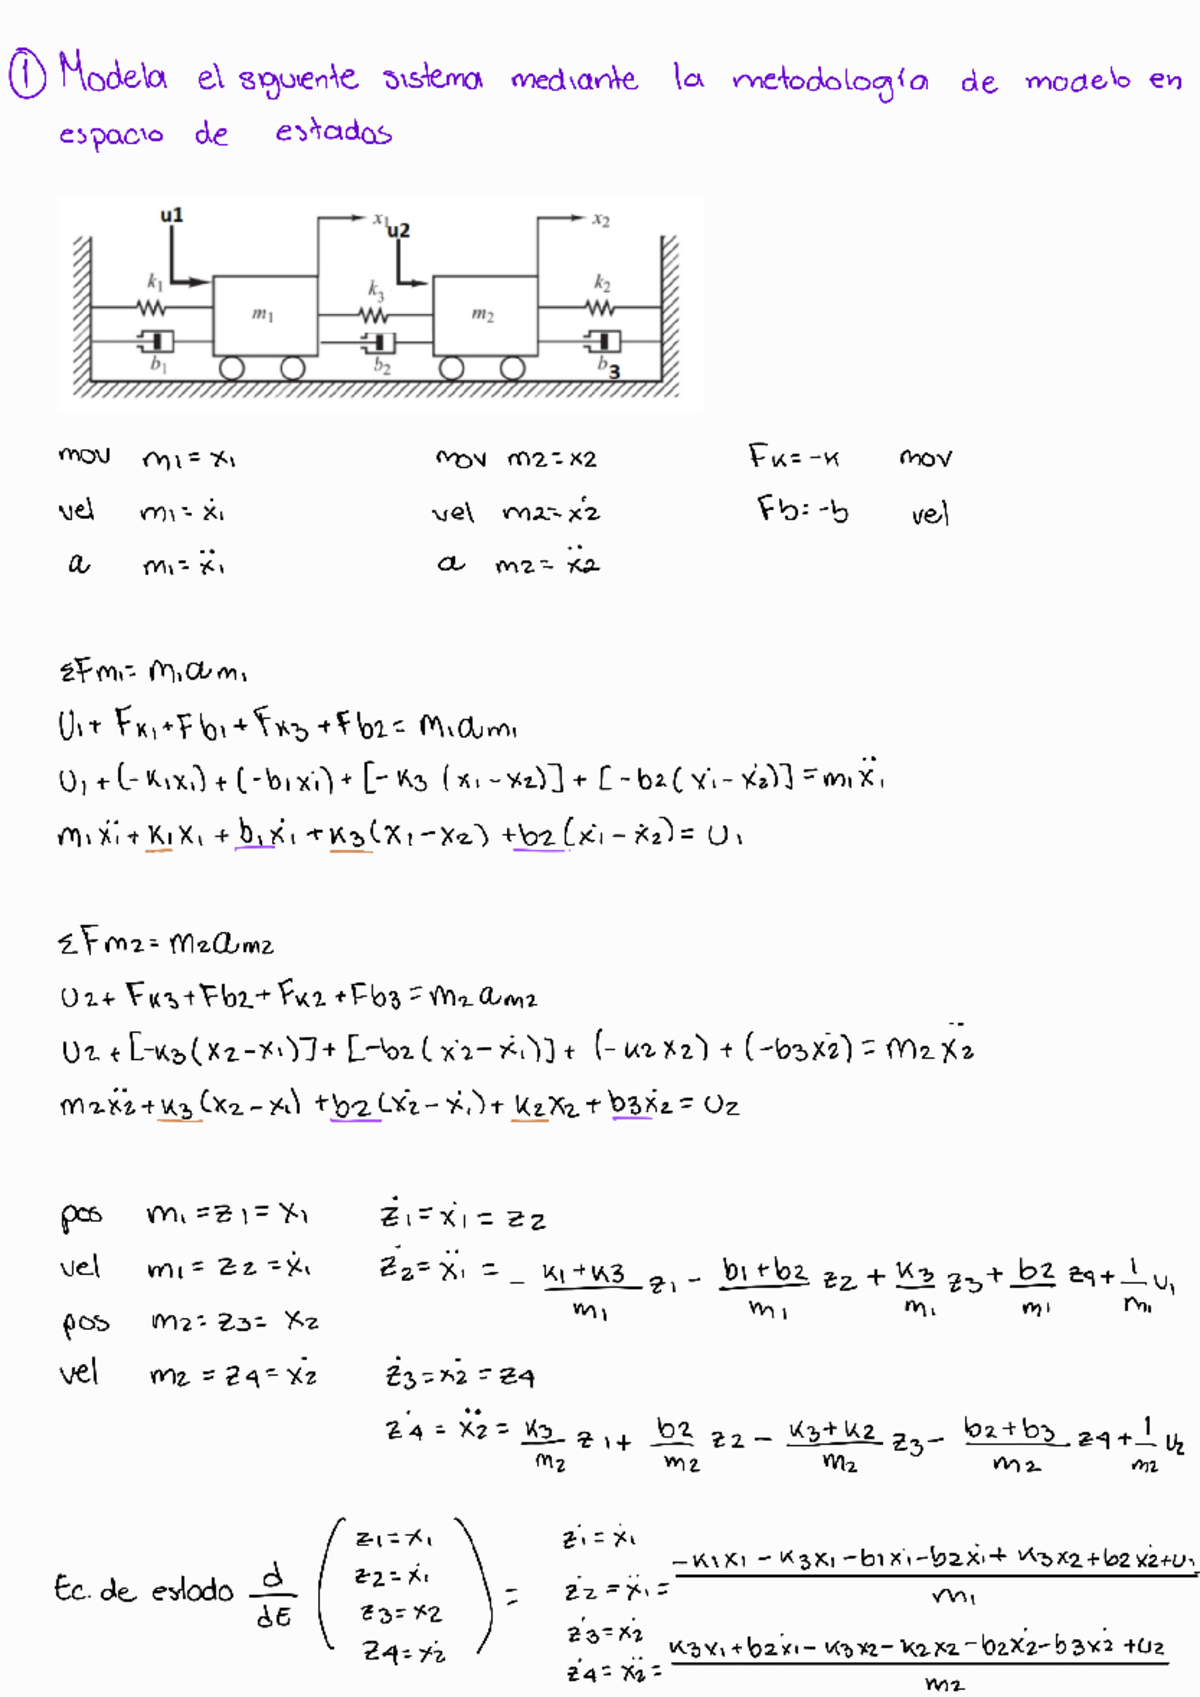 ① Modela el siguiente sistema mediante la metodología de modelo en
espacio de estados
u1 x1 u2 x2
k1 k3 k2
m1 m2
b1 b2 b3
mov m1 = x1 mov m2 = x2 Fk = -k mov
vel m1 = ẋ1 vel m2 = ẋ2 Fb = -b vel
a m1 = ẍ1 a m2 = ẍ2
ΣFm1 = m1am1
U1 + Fk1 + Fb1 + Fk3 + Fb2 = m1am1
U1 + (-k1x1) + (-b1ẋ1) + [-k3 (x1 - x2)] + [-b2(ẋ1 - ẋ2)] = m1ẍ1
m1ẍ1 + k1x1 + b1ẋ1 + k3(x1 - x2) + b2(ẋ1 - ẋ2) = U1
ΣFm2 = m2am2
U2 + Fk3 + Fb2 + Fk2 + Fb3 = m2am2
U2 + [-k3(x2 - x1)] + [-b2(ẋ2 - ẋ1)] + (-k2x2) + (-b3ẋ2) = m2ẍ2
m2ẍ2 + k3(x2 - x1) + b2(ẋ2 - ẋ1) + k2x2 + b3ẋ2 = U2
pos m1 = z1 = x1 ż1 = ẋ1 = z2
vel m1 = z2 = ẋ1 ż2 = ẍ1 = - (k1+k3)/m1 z1 - (b1+b2)/m1 z2 + k3/m1 z3 + b2/m1 z4 + 1/m1 U1
pos m2 = z3 = x2
vel m2 = z4 = ẋ2 ż3 = ẋ2 = z4
ż4 = ẍ2 = k3/m2 z1 + b2/m2 z2 - (k3+k2)/m2 z3 - (b2+b3)/m2 z4 + 1/m2 U2
z1 = x1 ż1 = ẋ1
Ec. de estado d/dt z2 = ẋ1 = ż2 = ẍ1 = (-k1x1 - k3x1 - b1ẋ1 - b2ẋ1 + k3x2 + b2ẋ2 + U1)/m1
z3 = x2 ż3 = ẋ2
z4 = ẋ2 ż4 = ẍ2 = (k3x1 + b2ẋ1 - k3x2 - k2x2 - b2ẋ2 - b3ẋ2 + U2)/m2